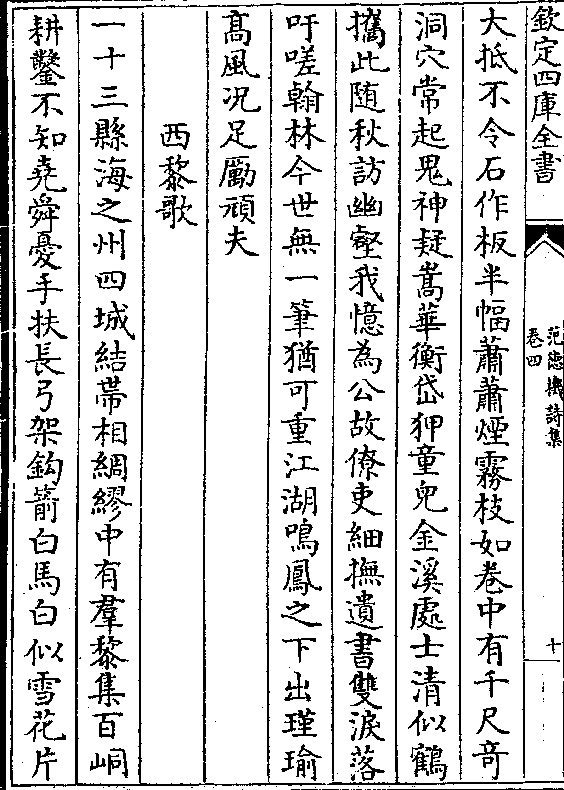 欽定四庫全書
范德機詩集
卷四
十
大抵不令石作板半幅蕭蕭煙霧枝如卷中有千尺竒
洞穴常起鬼神疑嵩華衡岱狎童兒金溪處士清似鶴
攜此随秋訪幽壑我憶為公故僚吏細撫遺書雙淚落
吁嗟翰林今世無一筆猶可重江湖鳴鳳之下出瑾瑜
髙風况足勵頑夫
西黎歌
一十三縣海之州四城結帶相綢繆中有羣黎集百峒
耕鑿不知堯舜憂手扶長弓架鈎箭白馬白似雪花片